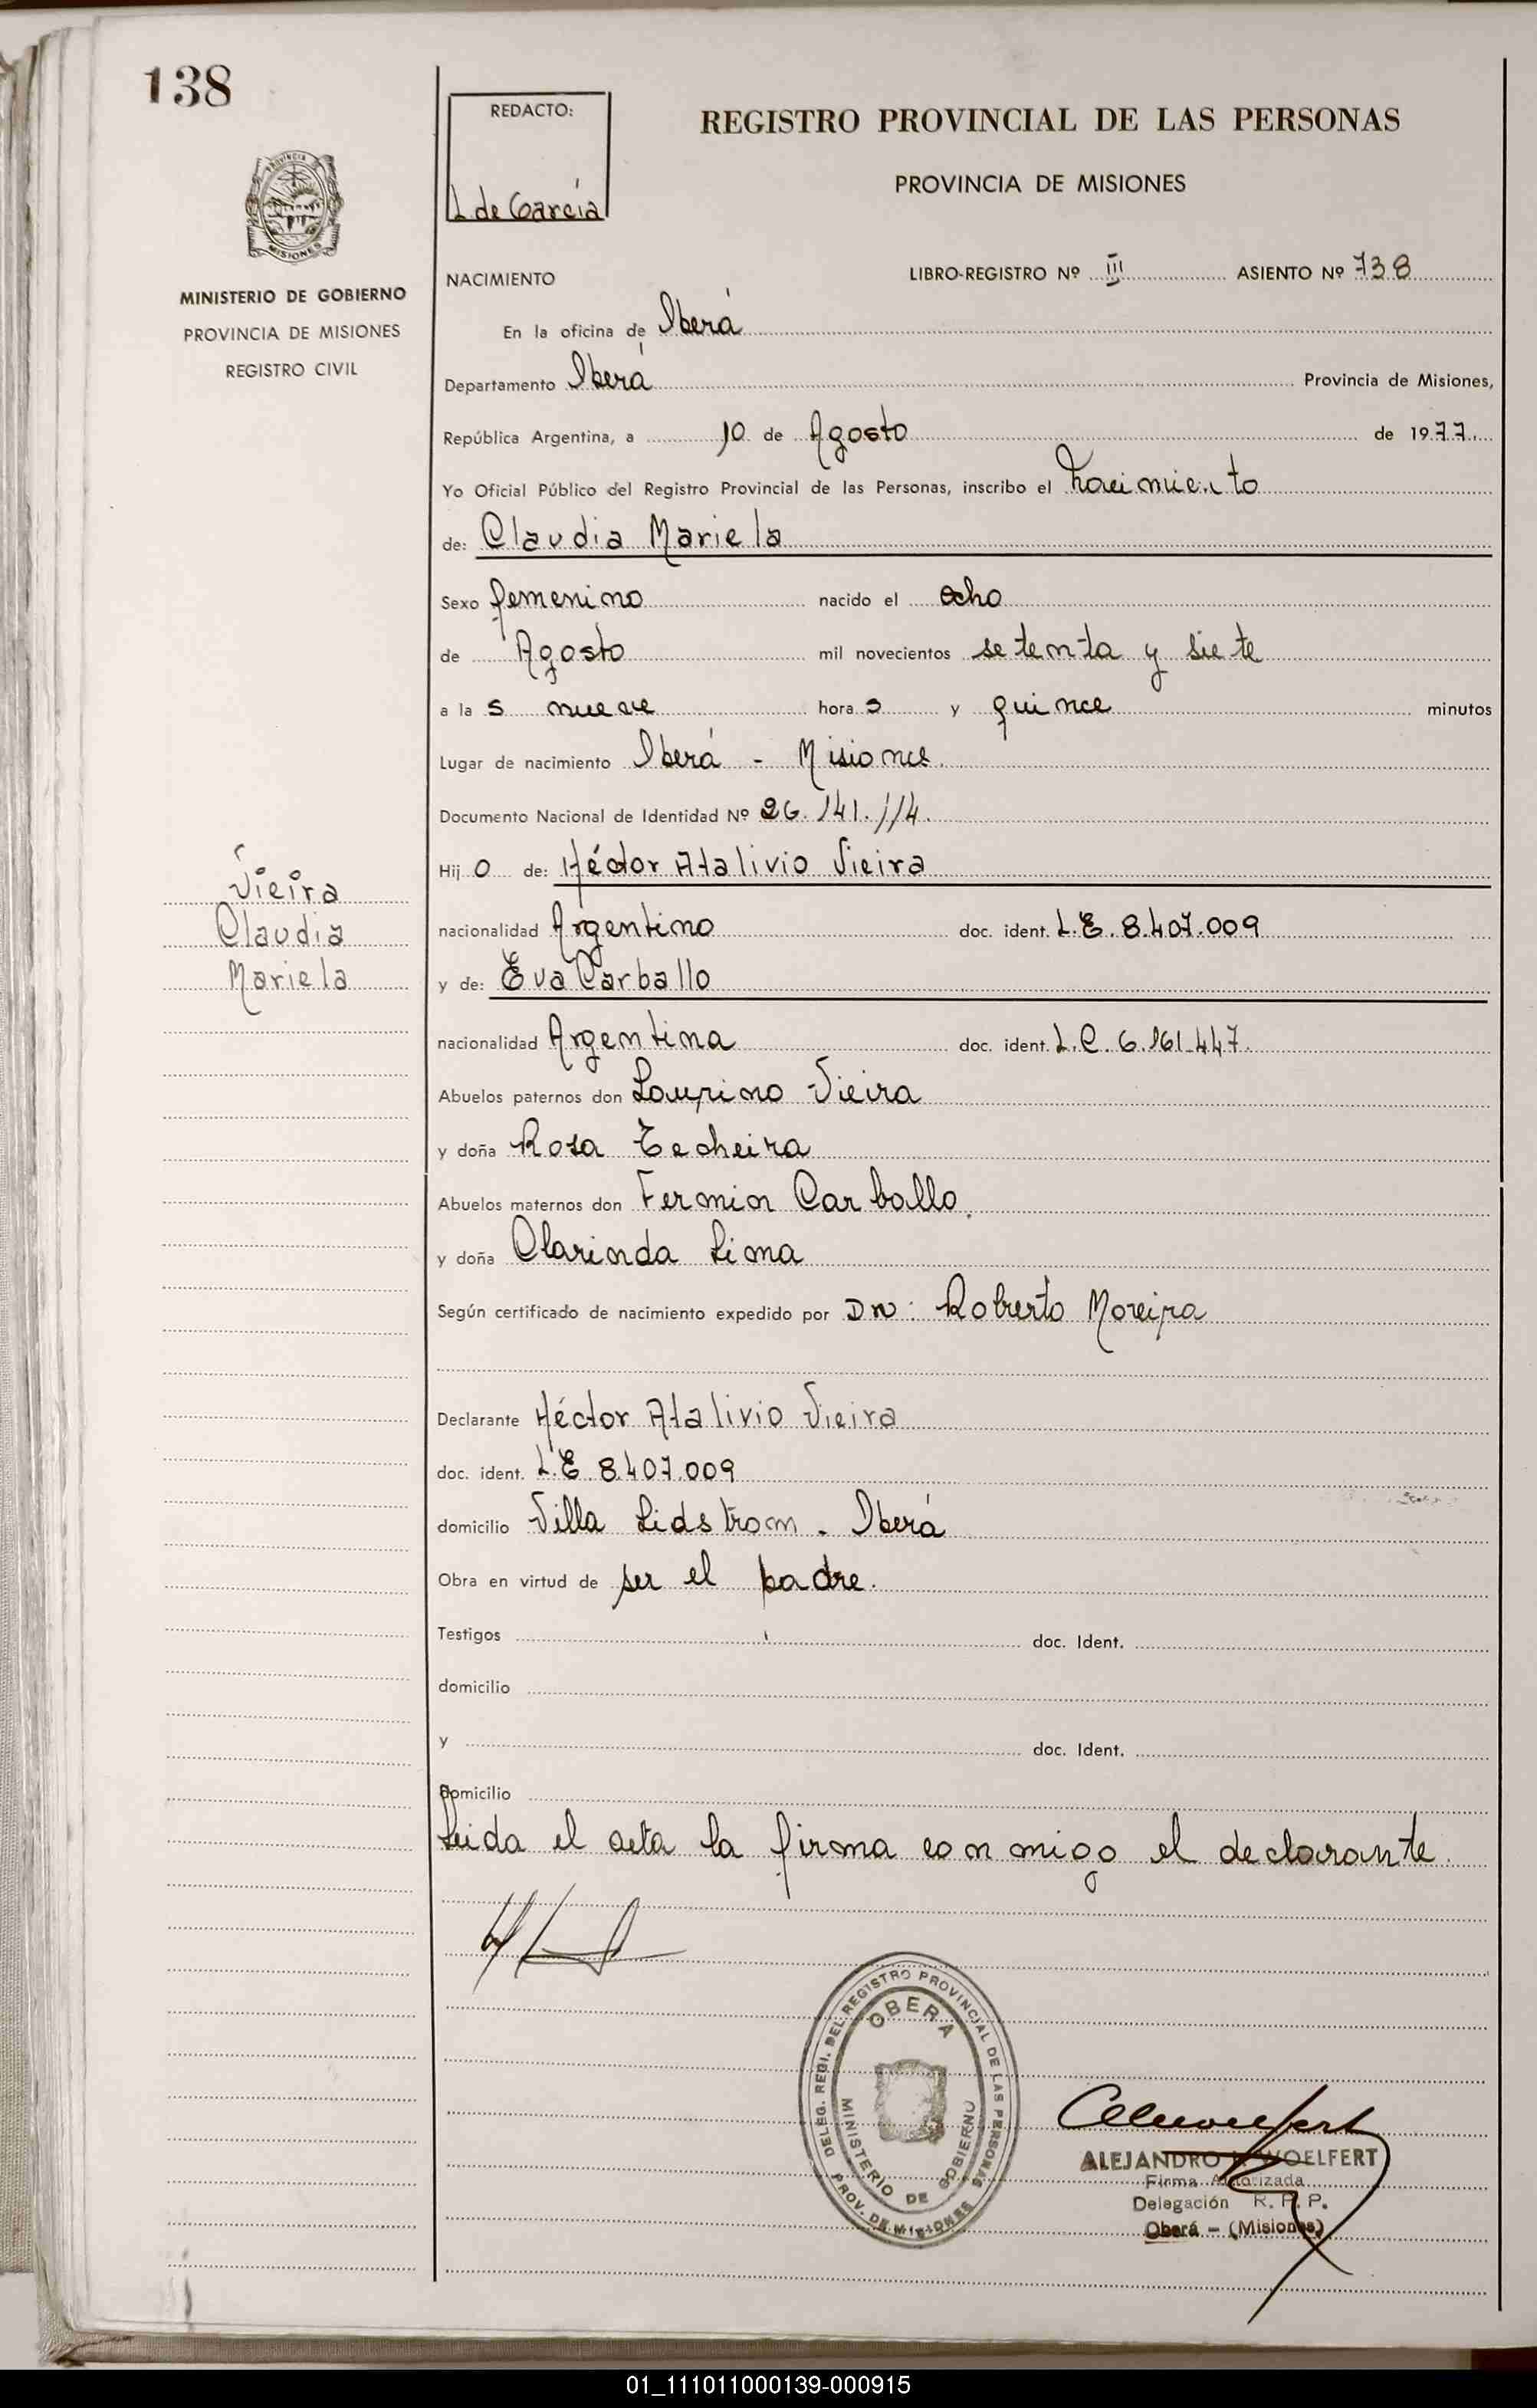 138
REDACTO:
L de García
REGISTRO PROVINCIAL DE LAS PERSONAS
PROVINCIA DE MISIONES
PROVINCIA
MISIONES
MINISTERIO DE GOBIERNO
PROVINCIA DE MISIONES
REGISTRO CIVIL
NACIMIENTO LIBRO-REGISTRO Nº III ASIENTO Nº 738
En la oficina de Oberá
Departamento Oberá Provincia de Misiones,
República Argentina, a 10 de Agosto de 1977
Yo Oficial Público del Registro Provincial de las Personas, inscribo el nacimiento
de: Claudia Mariela
Sexo femenino nacido el ocho
de Agosto mil novecientos setenta y siete
a la s nueve hora s y quince minutos
Lugar de nacimiento Oberá - Misiones.
Documento Nacional de Identidad Nº 26.141.114.
Hij o de: Héctor Atalivio Vieira
Vieira
Claudia
Mariela
nacionalidad Argentino doc. ident. L.E. 8.407.009
y de: Eva Carballo
nacionalidad Argentina doc. ident. L.C. 6.161.447.
Abuelos paternos don Vieira
y doña Rosa Techeira
Abuelos maternos don Fermin Carballo.
y doña Clarinda Lima
Según certificado de nacimiento expedido por Dr: Roberto Moreira
Declarante Héctor Atalivio Vieira
doc. ident. L.E. 8.407.009
domicilio Villa Lidstrom - Oberá
Obra en virtud de ser el padre.
Testigos doc. Ident.
domicilio
y doc. Ident.
domicilio
Leida el acta la firma conmigo el declarante
DELEG. REGI. DEL REGISTRO PROVINCIAL DE LAS PERSONAS
OBERÁ
MINISTERIO DE GOBIERNO
PROV. DE MISIONES
ALEJANDRO WOELFERT
Firma Autorizada
Delegación R. P. P.
Oberá - (Misiones)
01_111011000139-000915